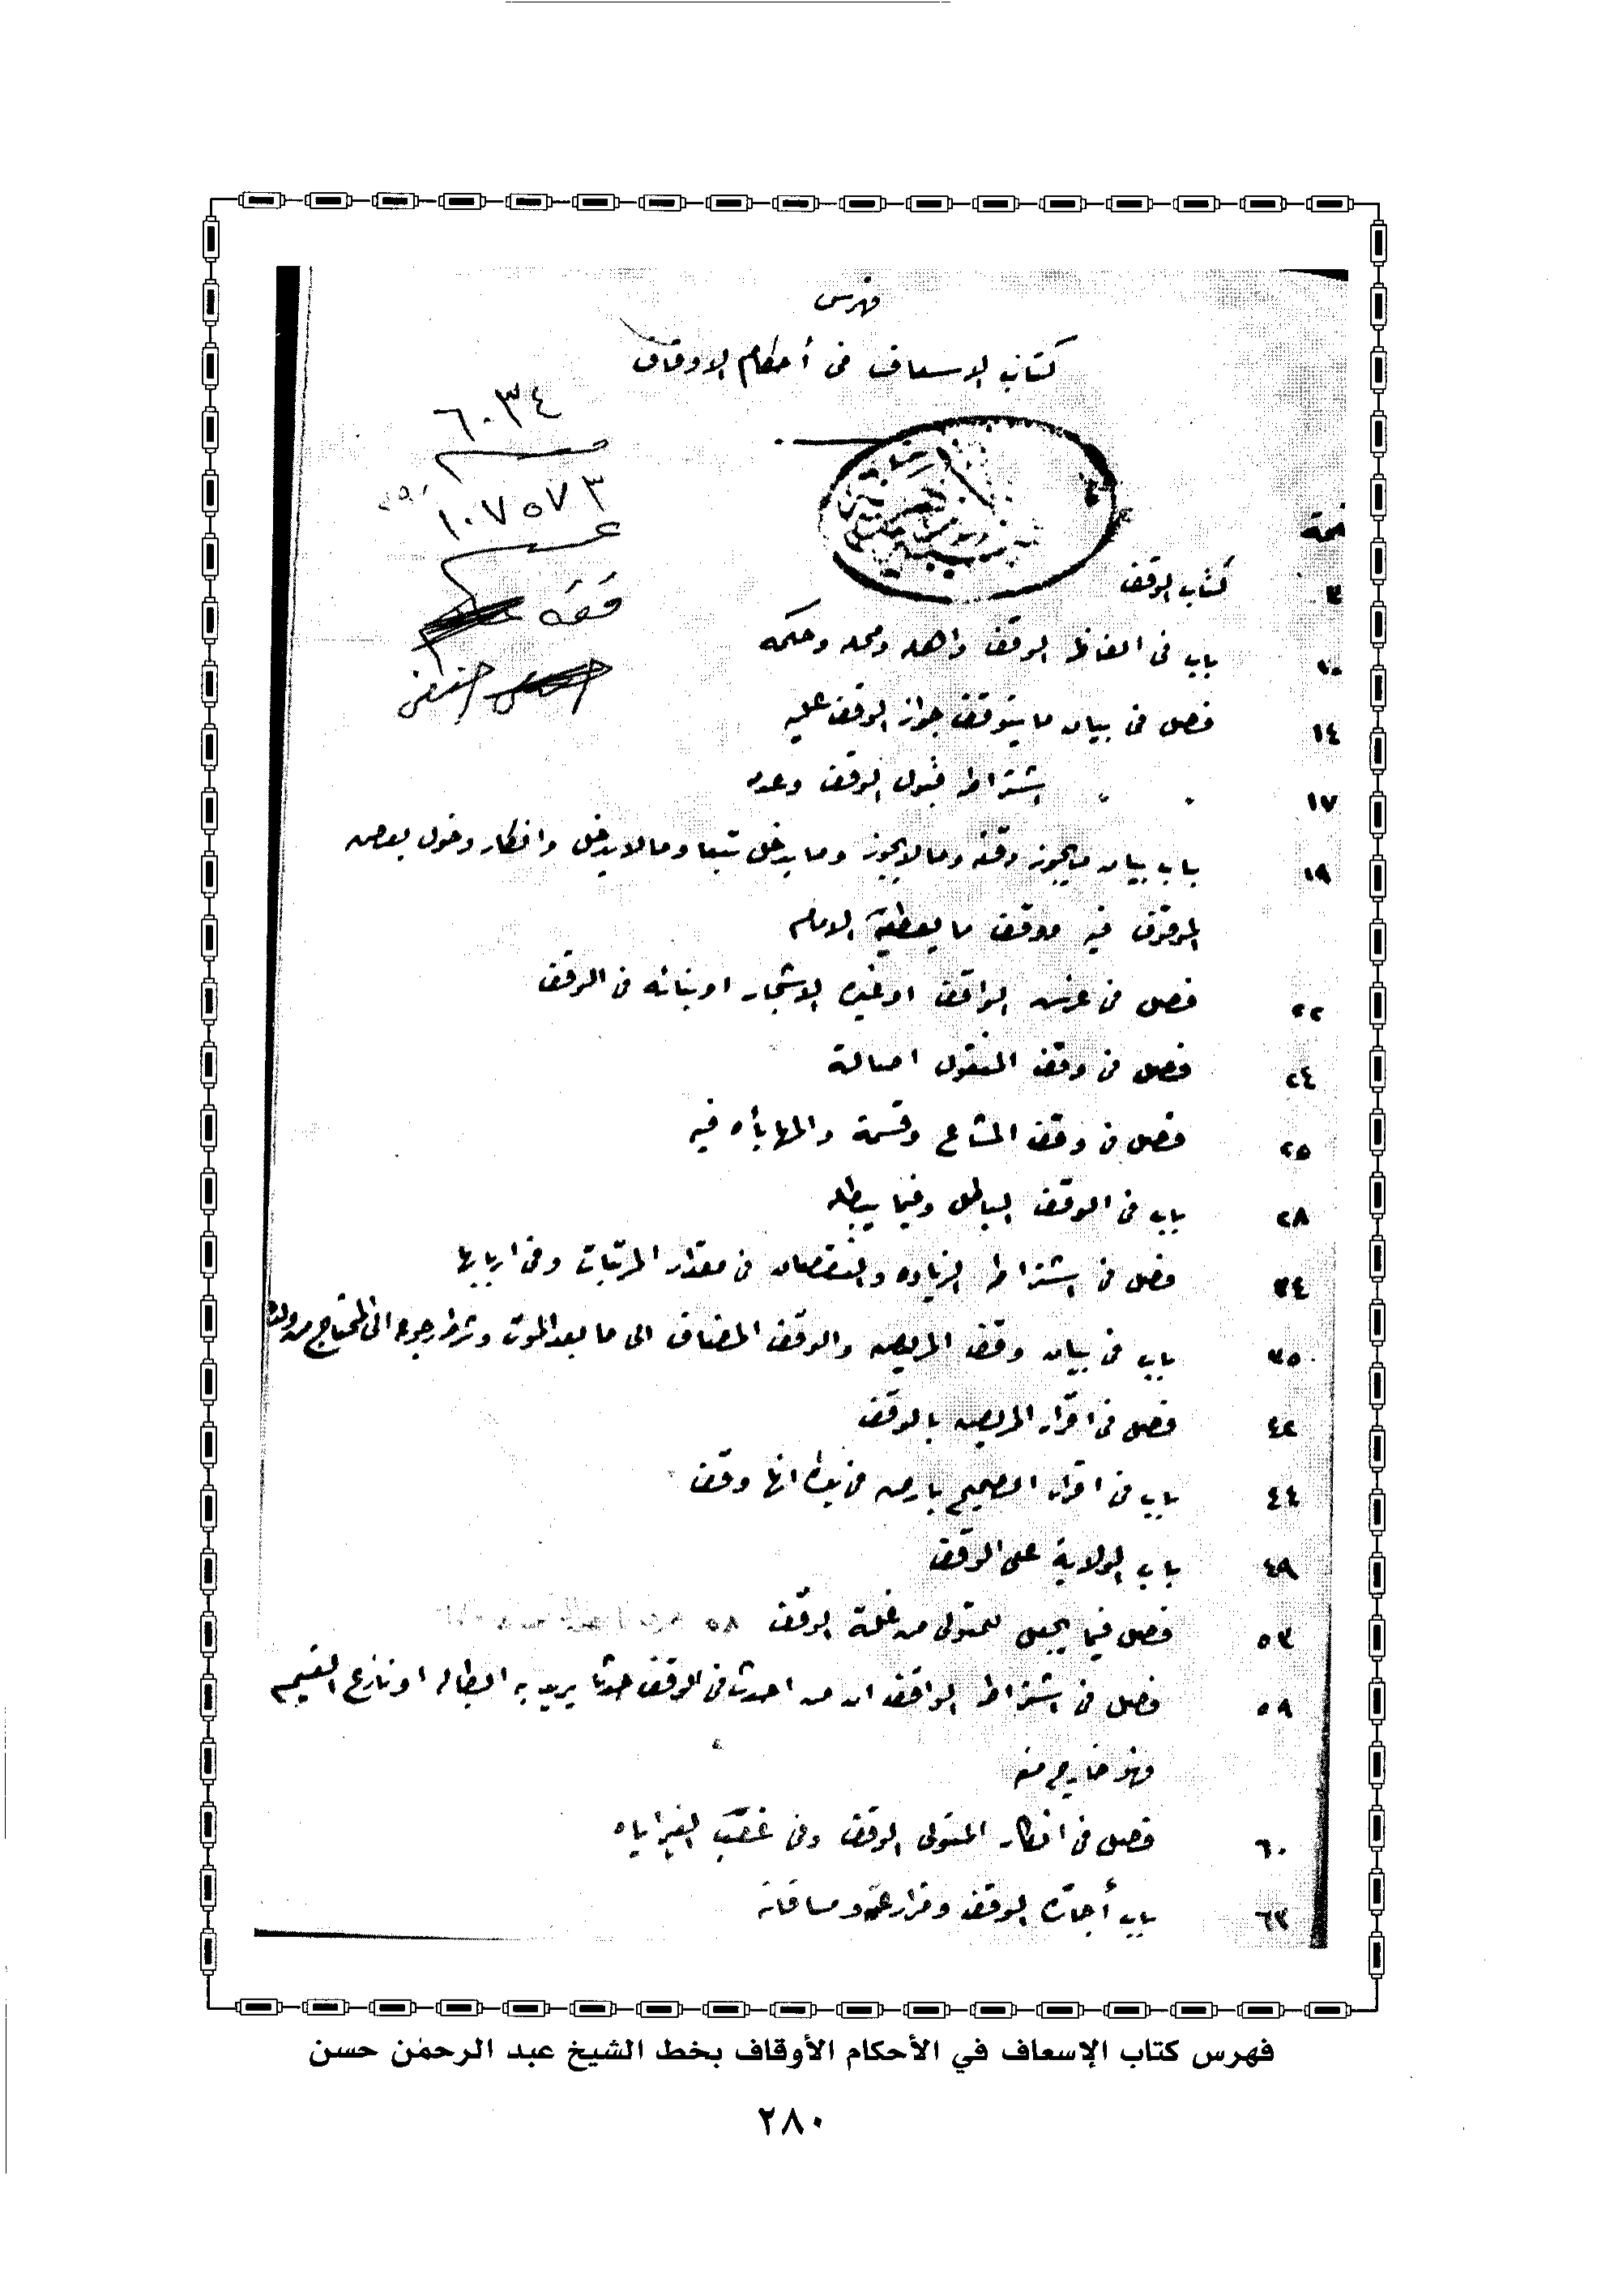 فهرس
كتاب الاسعاف فى أحكام الاوقاف
٦٠٣٤
١٠٧٥٧٣
فقه
حنفى
صحة
٣ كتاب الوقف
١٠ باب فى الفاظ الوقف واهله ومحله وحكمه
١٤ فصل فى بيان ما يتوقف جواز الوقف عليه
١٧ " " اشتراط قبول الوقف وعدمه
١٩ باب بيان ما يجوز وقفه وما لا يجوز وما يدخل تبعا وما لا يدخل وانكار دخول بعض
الموقوف فيه ووقف ما يعطيه الامام
٢٢ فصل فى غرس الواقف او غيره الاشجار او بنائه فى الوقف
٢٤ فصل فى وقف المنقول اصالة
٢٥ فصل فى وقف المشاع وقسمة والمهايأه فيه
٢٨ باب فى الوقف الباطل وفيما يبطله
٣٤ فصل فى اشتراط الزياده والنقصان فى مقدار المرتبات وفى اربابها
٣٥ باب فى بيان وقف المريض والوقف المضاف الى ما بعد الموت وشرط رجوعه الى المحتاج من ولده
٤٢ فصل فى اقرار المريض بالوقف
٤٤ باب فى اقرار الصحيح بارض فى يده انها وقف
٤٩ باب الولاية على الوقف
٥٣ فصل فيما يجعل للمتولى من غلة الوقف ٥٨
٥٩ فصل فى اشتراط الواقف ان من احدث فى الوقف حدثا يريد به ابطاله او نازع القيم
فهو خارج منه
٦٠ فصل فى انكار المتولى الوقف وفى غصب الغير اياه
٦٣ باب أجارة الوقف ومزارعته ومساقاته
فهرس كتاب الإسعاف في الأحكام الأوقاف بخط الشيخ عبد الرحمٰن حسن
٢٨٠